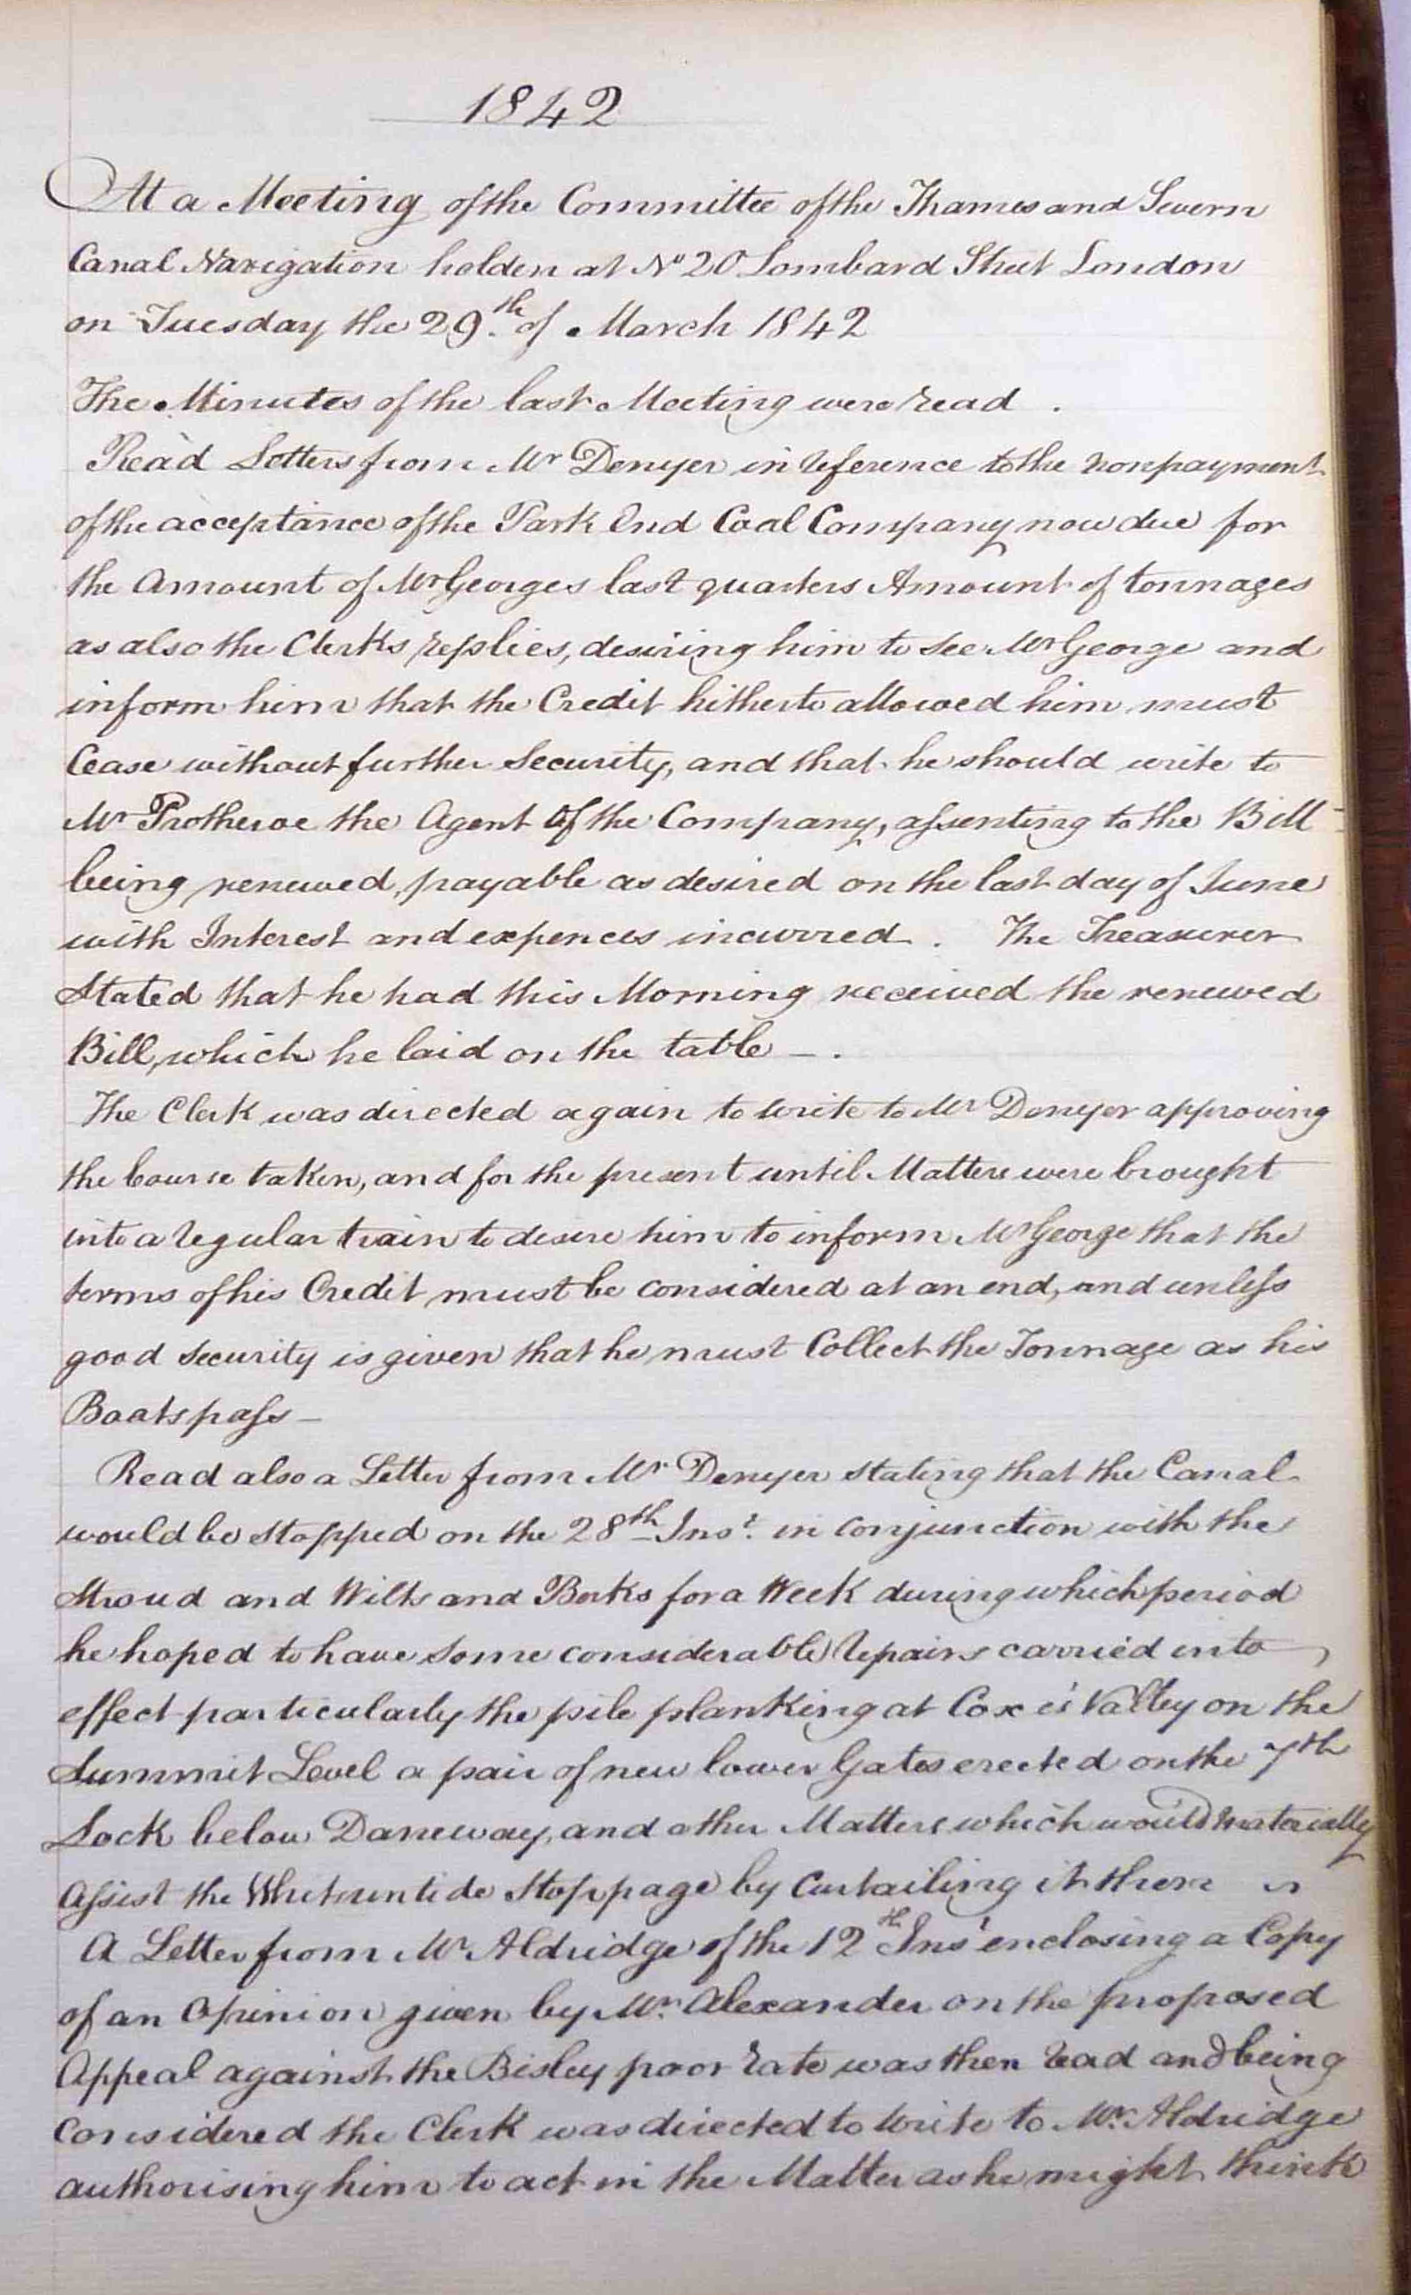 1842
At a Meeting of the Committee of the Thames and Severn
Canal Navigation holden at No 20 Lombard Street London
on Tuesday the 29th of March 1842
The Minutes of the last Meeting were read .
Read Letters from Mr Denyer in reference to the nonpayment
of the acceptance of the Park End Coal Company now due for
the Amount of Mr Georges last quarters Amount of tonnages
as also the Clerks replies, desiring him to see Mr George and
inform him that the Credit hitherto allowed him must
Cease without further Security, and that he should write to
Mr Protheroe the Agent of the Company, assenting to the Bill
being renewed, payable as desired on the last day of June
with Interest and expences incurred . The Treasurer
Stated that he had this Morning received the renewed
Bill, which he laid on the table — .
The Clerk was directed again to write to Mr Denyer approving
the Course taken, and for the present until Matters were brought
into a regular train to desire him to inform Mr George that the
terms of his Credit must be considered at an end, and unless
good Security is given that he must Collect the Tonnage as his
Boats pass —
Read also a Letter from Mr Denyer stating that the Canal
would be Stopped on the 28th Inst. in conjunction with the
Stroud and Wilts and Berks for a Week during which period
he hoped to have some considerable repairs carried into
effect particularly the pile planking at Coxe's Valley on the
Summit Level a pair of new lower Gates erected on the 7th
Lock below Daneway, and other Matters which would materially
Assist the Whitsuntide Stoppage by Curtailing it then
A Letter from Mr Aldridge of the 12th Inst enclosing a Copy
of an Opinion given by Mr. Alexander on the proposed
Appeal against the Bisley poor rate was then read and being
Considered the Clerk was directed to write to Mr. Aldridge
authorising him to act in the Matter as he might think